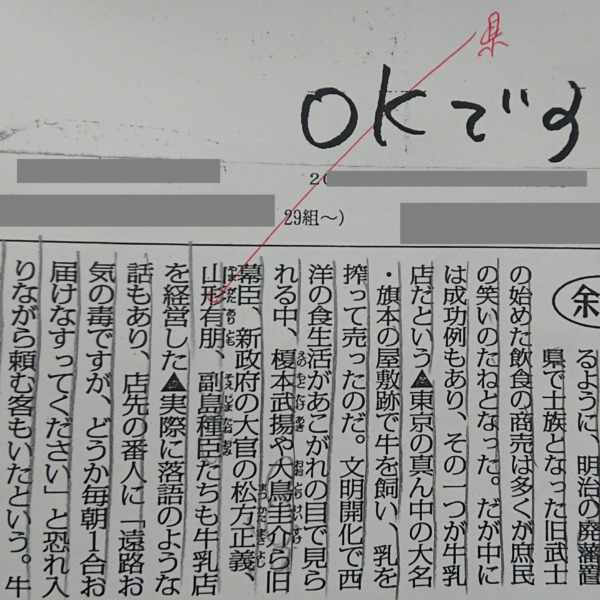 県
OKです
29組～)
余
るように、明治の廃藩置
県で士族となった旧武士
の始めた飲食の商売は多くが庶民
の笑いのたねとなった。だが中に
は成功例もあり、その一つが牛乳
店だという▲東京の真ん中の大名
・旗本の屋敷跡で牛を飼い、乳を
搾って売ったのだ。文明開化で西
洋の食生活があこがれの目で見ら
れる中、榎本武揚や大鳥圭介ら旧
幕臣、新政府の大官の松方正義、
山形有朋、副島種臣たちも牛乳店
を経営した▲実際に落語のような
話もあり、店先の番人に「遠路お
気の毒ですが、どうか毎朝1合お
届けなすってください」と恐れ入
りながら頼む客もいたという。牛